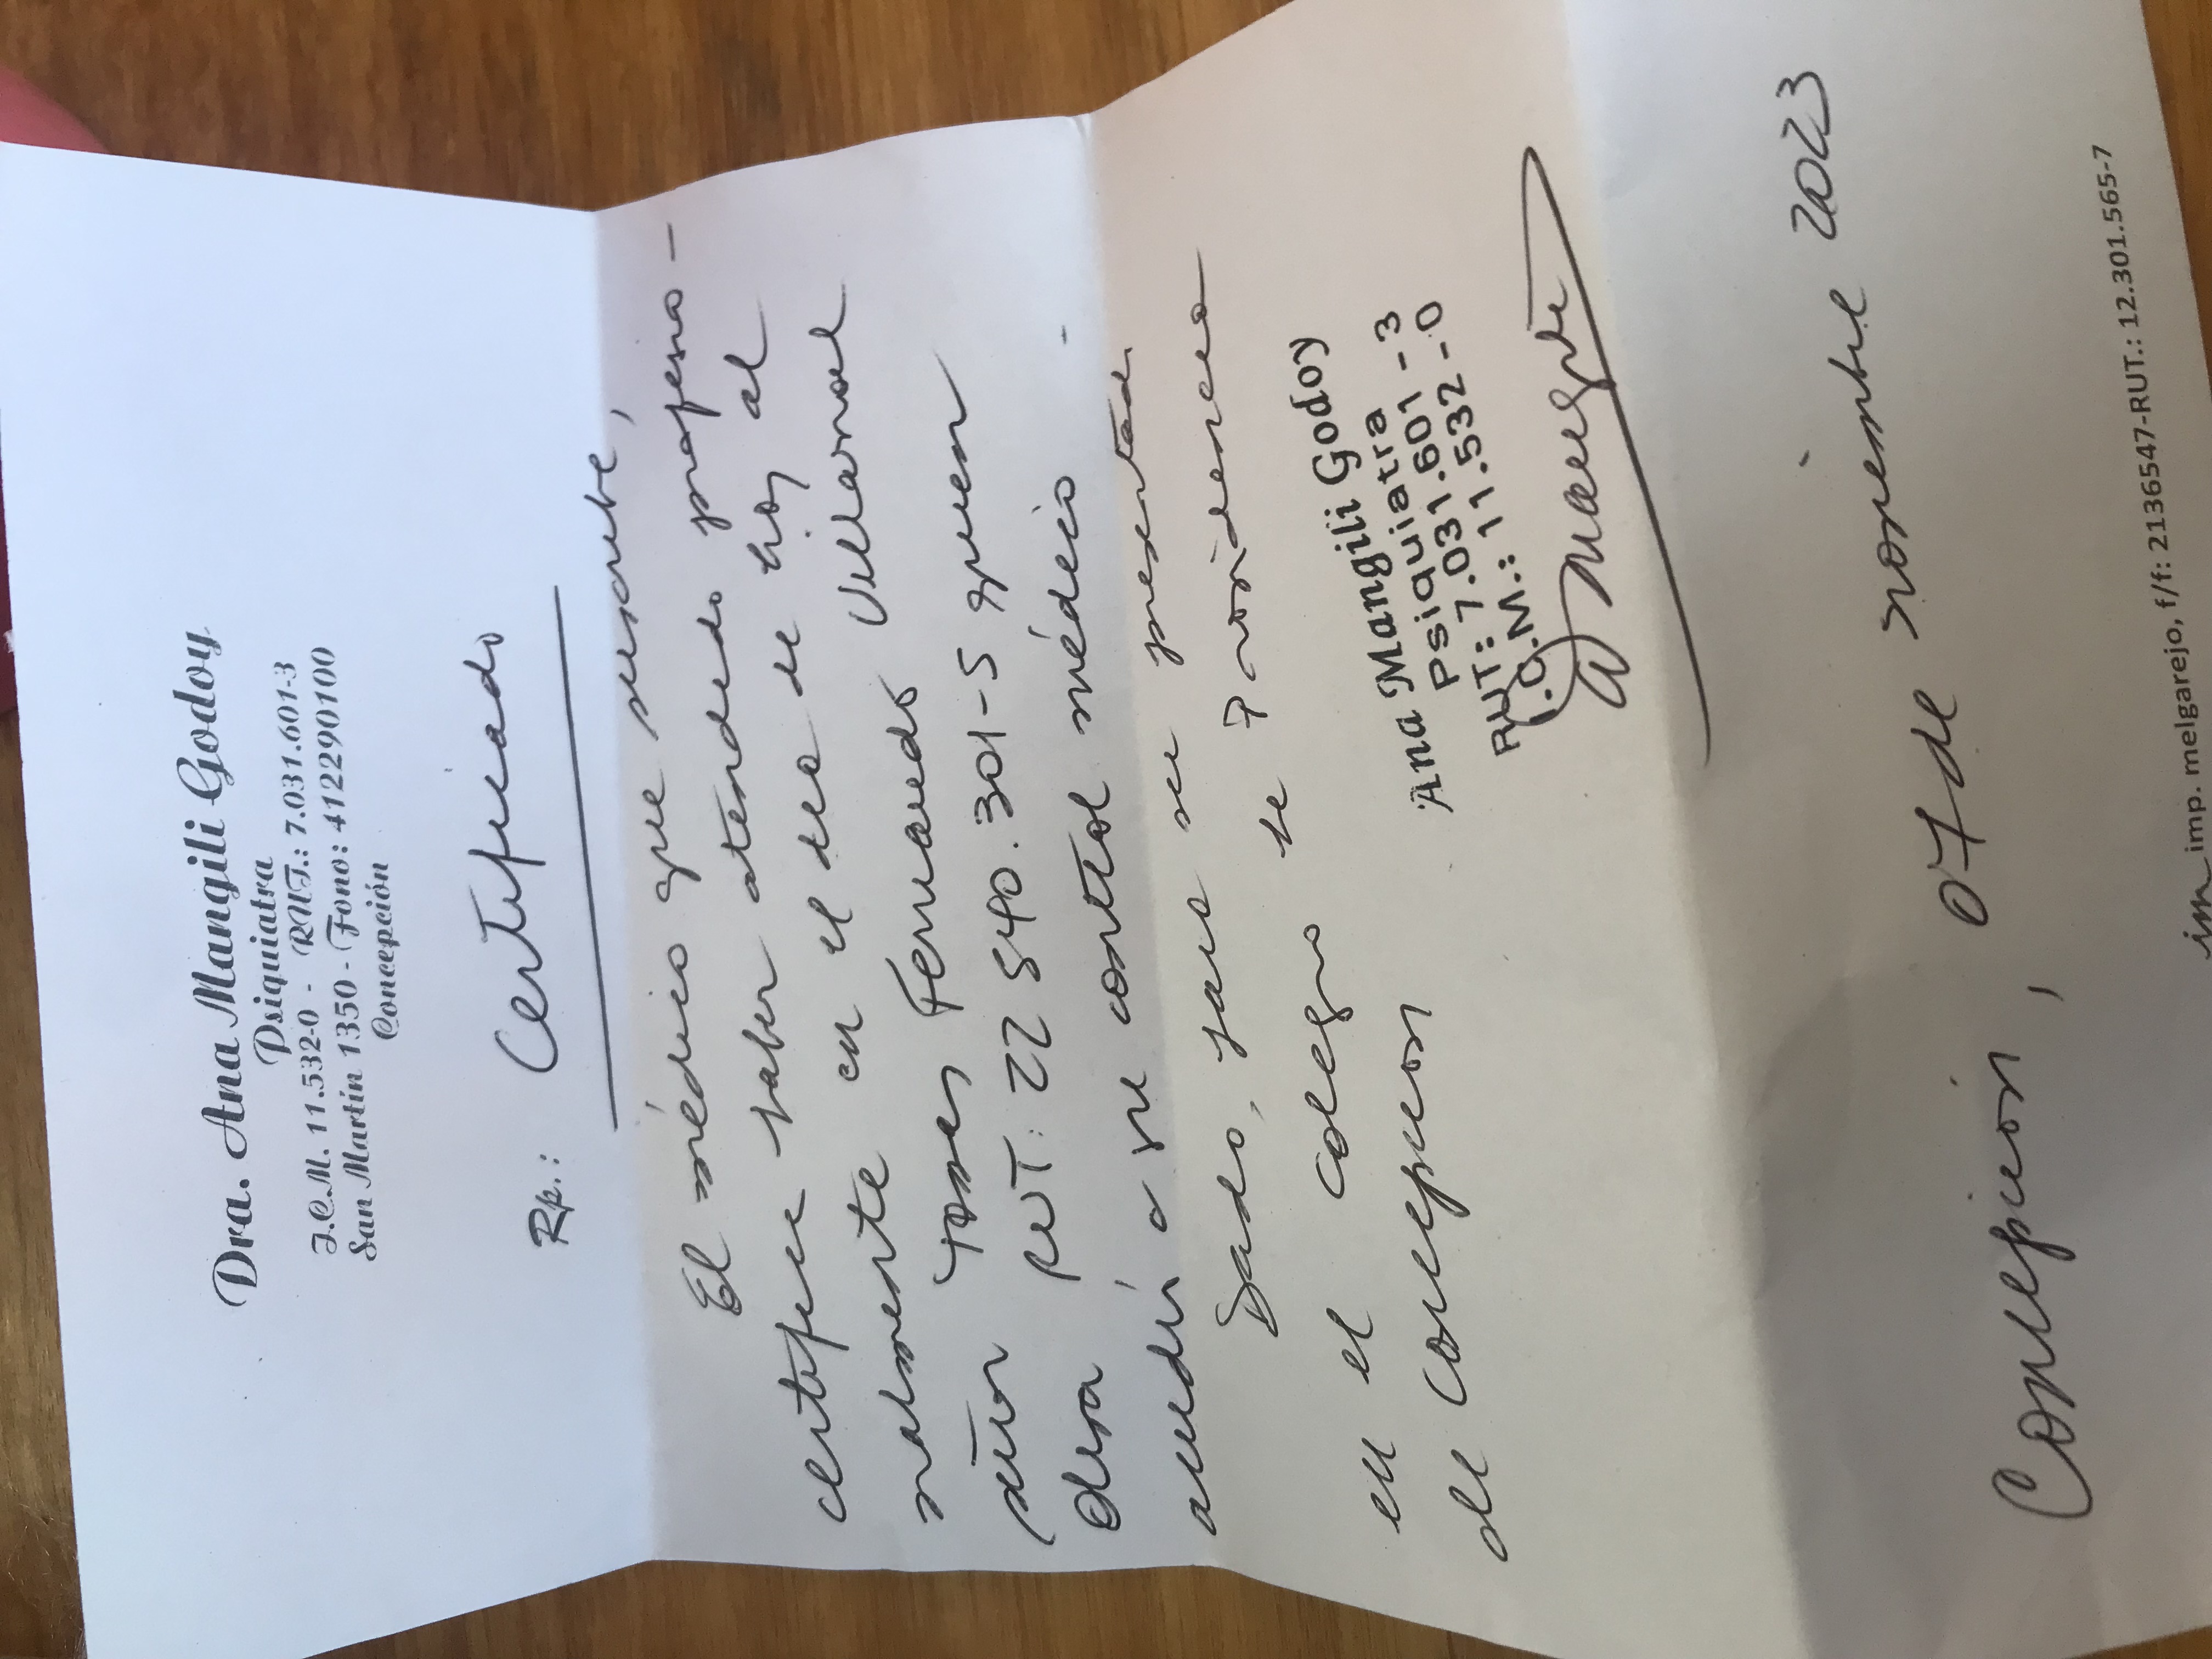 Dra. Ana Mangili Godoy
Psiquiatra
I.C.M. 11.532-0 - RUT.: 7.031.601-3
San Martín 1350 - Fono: 412290100
Concepción
Rp.: Certificado
El médico que suscribe,
certifica haber atendido profesio-
nalmente en el día de hoy al
señor Fernando Villarroel
RUT: 22 540.301-5 quien
acudió a su control médico.
Dado, para ser presentado
en el colegio la Providencia
de Concepción
Ana Mangili Godoy
Psiquiatra
RUT: 7.031.601-3
I.C.M.: 11.532-0
Concepción, 07 de noviembre 2023
im imp. melgarejo, f/f: 2136547-RUT.: 12.301.565-7